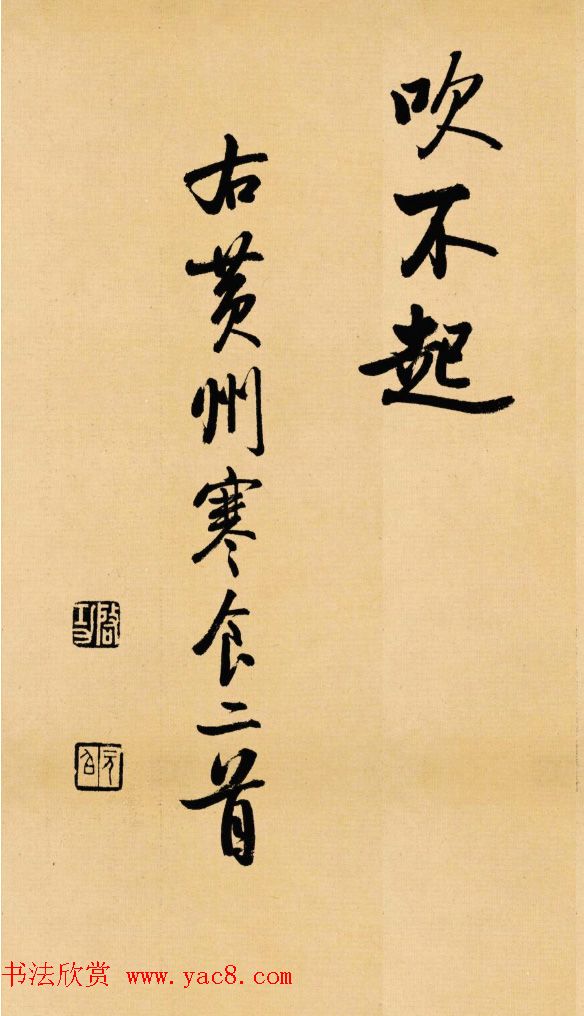 吹不起
右黄州寒食二首
启功
元白
书法欣赏 www.yac8.com